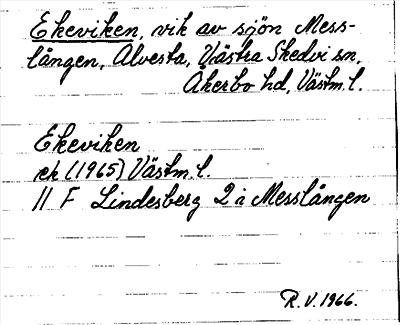 Ekeviken, vik av sjön Mess-
lången, Alvesta, Västra Skedvi sn,
Åkerbo hd, Västm. l.
Ekeviken
ek (1965) Västm. l.
11 F Lindesberg 2 a Messlången
R. V. 1966.